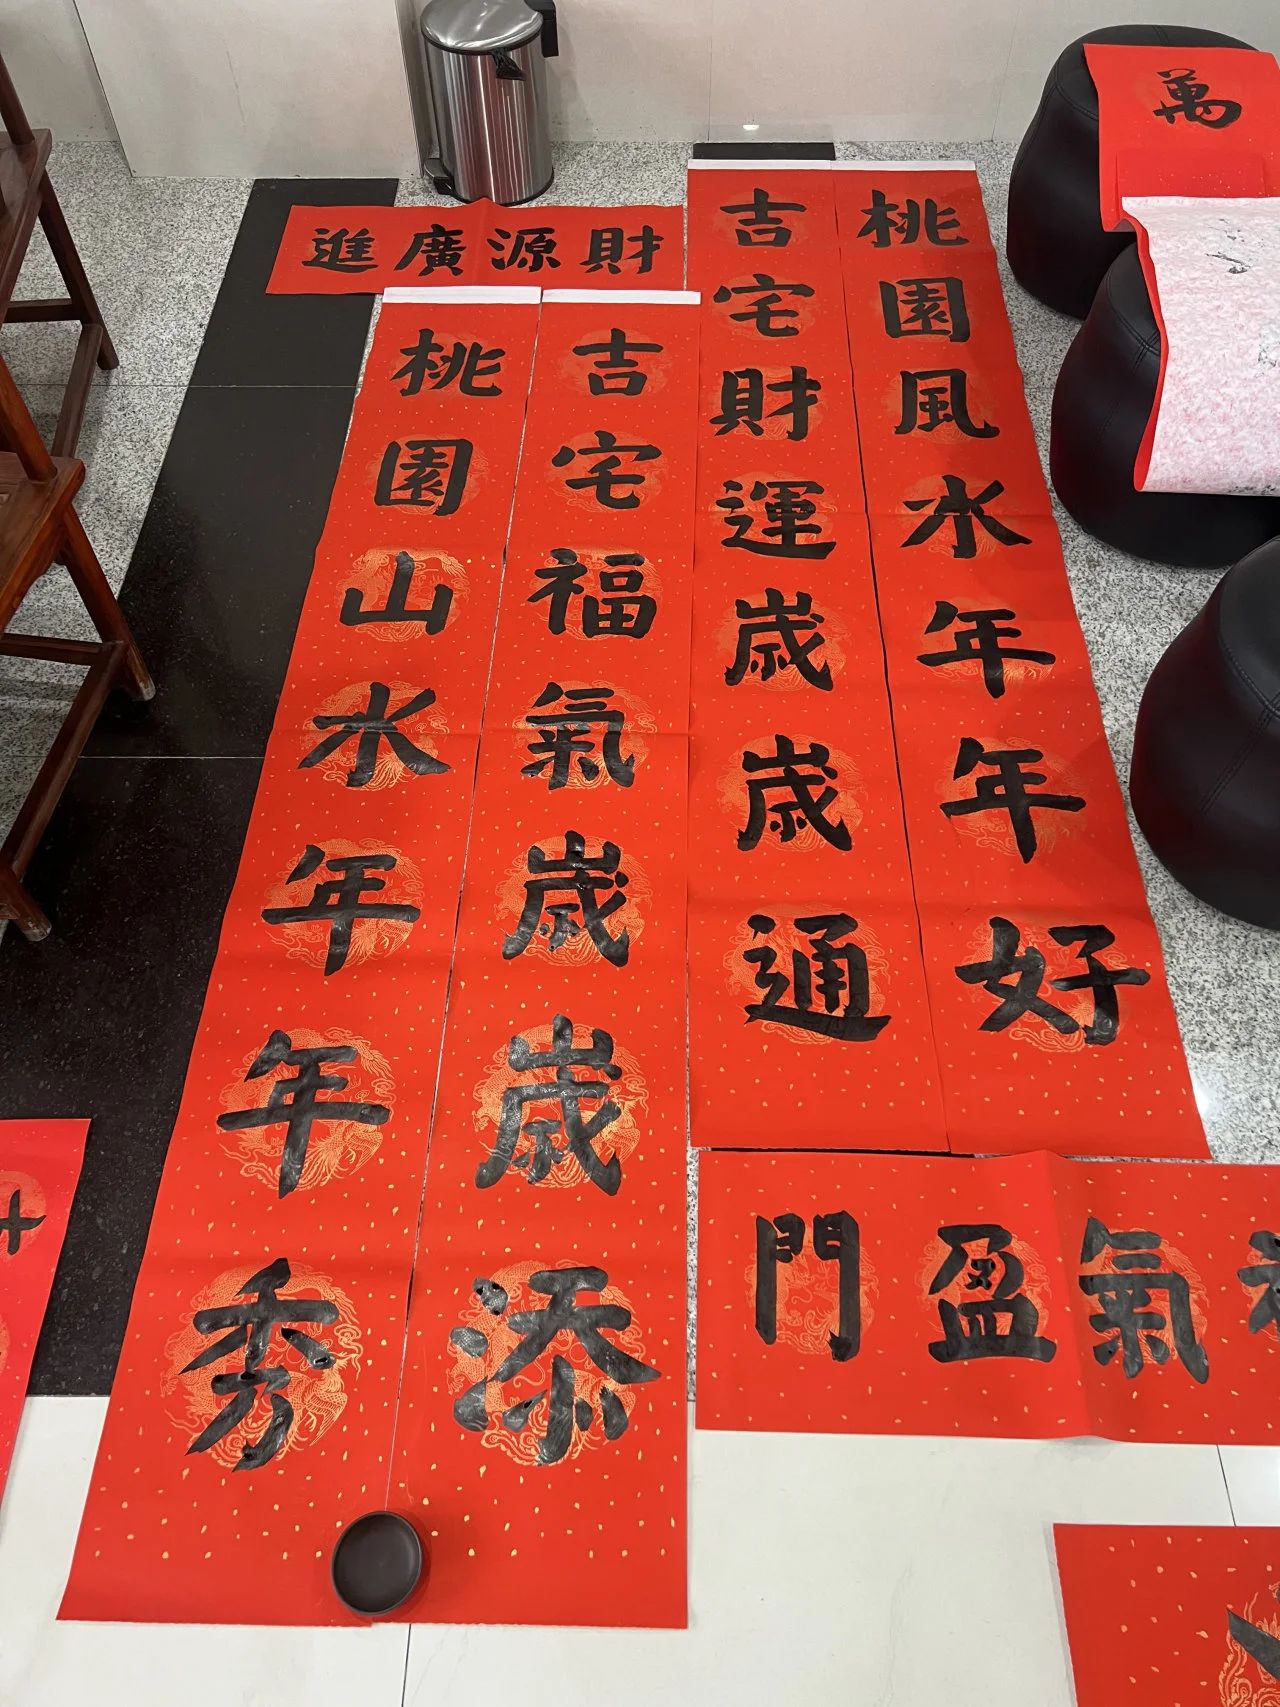 萬
財源廣進
桃園風水年年好
吉宅財運歲歲通
吉宅福氣歲歲添
桃園山水年年秀
氣盈門